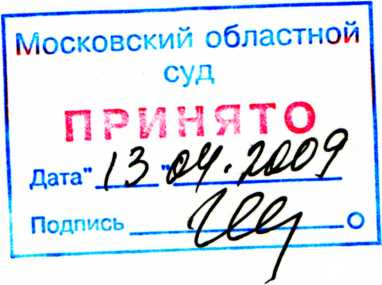 Московский областной
суд
ПРИНЯТО
Дата "13" 04.2009
Подпись